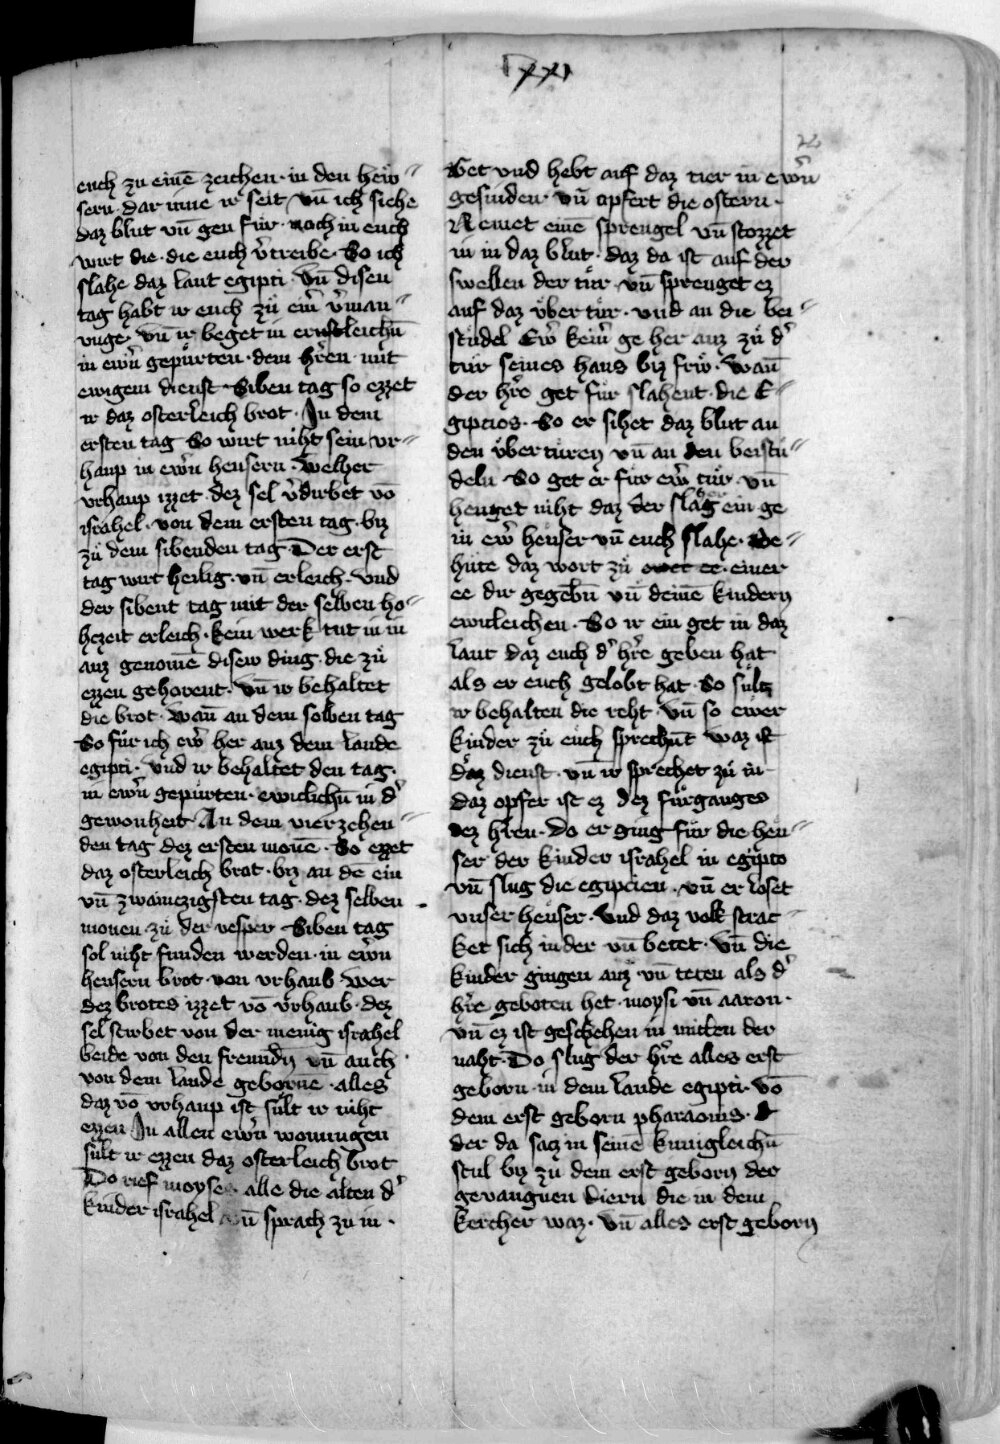 xxi
22
euch zu einē zeichen · in den hew̓〃
sern · dar inne ir seit vn̄ ich siehe
daz blut vn̄ gen fuͤr · noch in euch
wirt die · die euch v̓treibe · So ich
slahe daz lant egipti · vn̄ disen
tag habt ir euch zuͤ ew̓ v̓man〃
nuge vn̄ ir beget in ernstleichn̄
in ew̓n gepuͤrten · dem hr̓en · mit
ewigem dienst Siben tag so ezzet
ir daz osterleich brot · In dem
ersten tag So wirt niht sein vr〃
haup in ew̓n heusern · Welher
vrhaup izzet · dez sel v̓dirbet vō
israhel · von dem ersten tag · biz
zuͤ dem sibenden tag · Der erst
tag wirt heilig · vn̄ erleich · Vnd
der sibent tag mit der selben ho〃
hezeit erleich · kein werk tut in in
auz genomē disew ding · die zuͤ
ezzen gehorent · Vn̄ ir behaltet
die brot · wan̄ an dem selben tag
So fuͤr ich ew̓ her auz dem lande
egipti · Vnd ir behaltet den tag ·
in ew̓n gepuͤrten · ewiclichn̄ in d̓
gewonheit An dem vierzehen〃
den tag dez ersten monē · So ezzet
daz osterleich brot · biz an dē ein
vn̄ zwainczigsten tag · dez selben
monen · zuͤ der vesper Siben tag
sol niht funden werden · in ew̓n
heusern brot · von vrhaub · wer
dez brotes izzet vō vrhaub · dez
sel stirbet von der menig israhel
beide von den freunde͂n vn̄ auch
von dem lande gebornē · alles
daz vō vrhaup ist sult ir niht
ezzen In allen ew̓n wonungen
sult ir ezzen daz osterleich brot
Do rief moyses alle die alten d̓
kinder israhel vn̄ sprach zu in ·
Get vnd hebt auf daz tier in ew̓n
gesinden · vn̄ opfert die ostern ·
Nemet einē sprengel vn̄ stozzet
in in daz blut · daz da ist auf der
swellen der tuͤr vn̄ sprenget ez
auf daz vͤber tuͤr · vnd an die bei〃
studel Ew̓ kein̓ ge her auz zuͤ d̓
tuͤr seines haus biz fruͤ · wan̄
der hr̓e get fuͤr slahent · die E〃
gipcios · So er sihet daz blut an
den vͤber tuͤren vn̄ an den beistu〃
deln So get er fuͤr ew̓ tuͤr · vn̄
henget niht daz der slaher ein ge
in ew̓ heuser vn̄ euch slahe · Be〃
huͤte daz wort zuͤ einer
ee dir gegebn̄ vn̄ deinē kindern
ewicleichen · So ir ein get in daz
lant daz euch d̓ hr̓e geben hat
als er euch gelobt hat · So suͤlt
ir behalten die reht · vn̄ so ewer
kinder zuͤ euch sprechn̄t waz ist
daz dienst · vn̄ ir sprechet zu in
daz opfer ist ez dez fuͤrganges
dez hr̓en · do er ging fuͤr die heu〃
ser der kinder israhel in egipto
vn̄ slug die egipcien · vn̄ er loset
vnser heuser · Vnd daz volk strac〃
ket sich in der vn̄ betet · Vn̄ die
kinder gingen auz vn̄ teten als d̓
hr̓e geboten het · moysi vn̄ aaron ·
vn̄ ez ist geschehen in mitten der
naht · Do slug der hr̓e alles erst
geborn · in dem lande egipti · vō
dem erst geborn pharaonis ·
der da saz in seinē kunigleichn̄
stul biz zu dem erst geborn der
gevangnen diern die in dem
kercher waz · vn̄ alles erst geborn